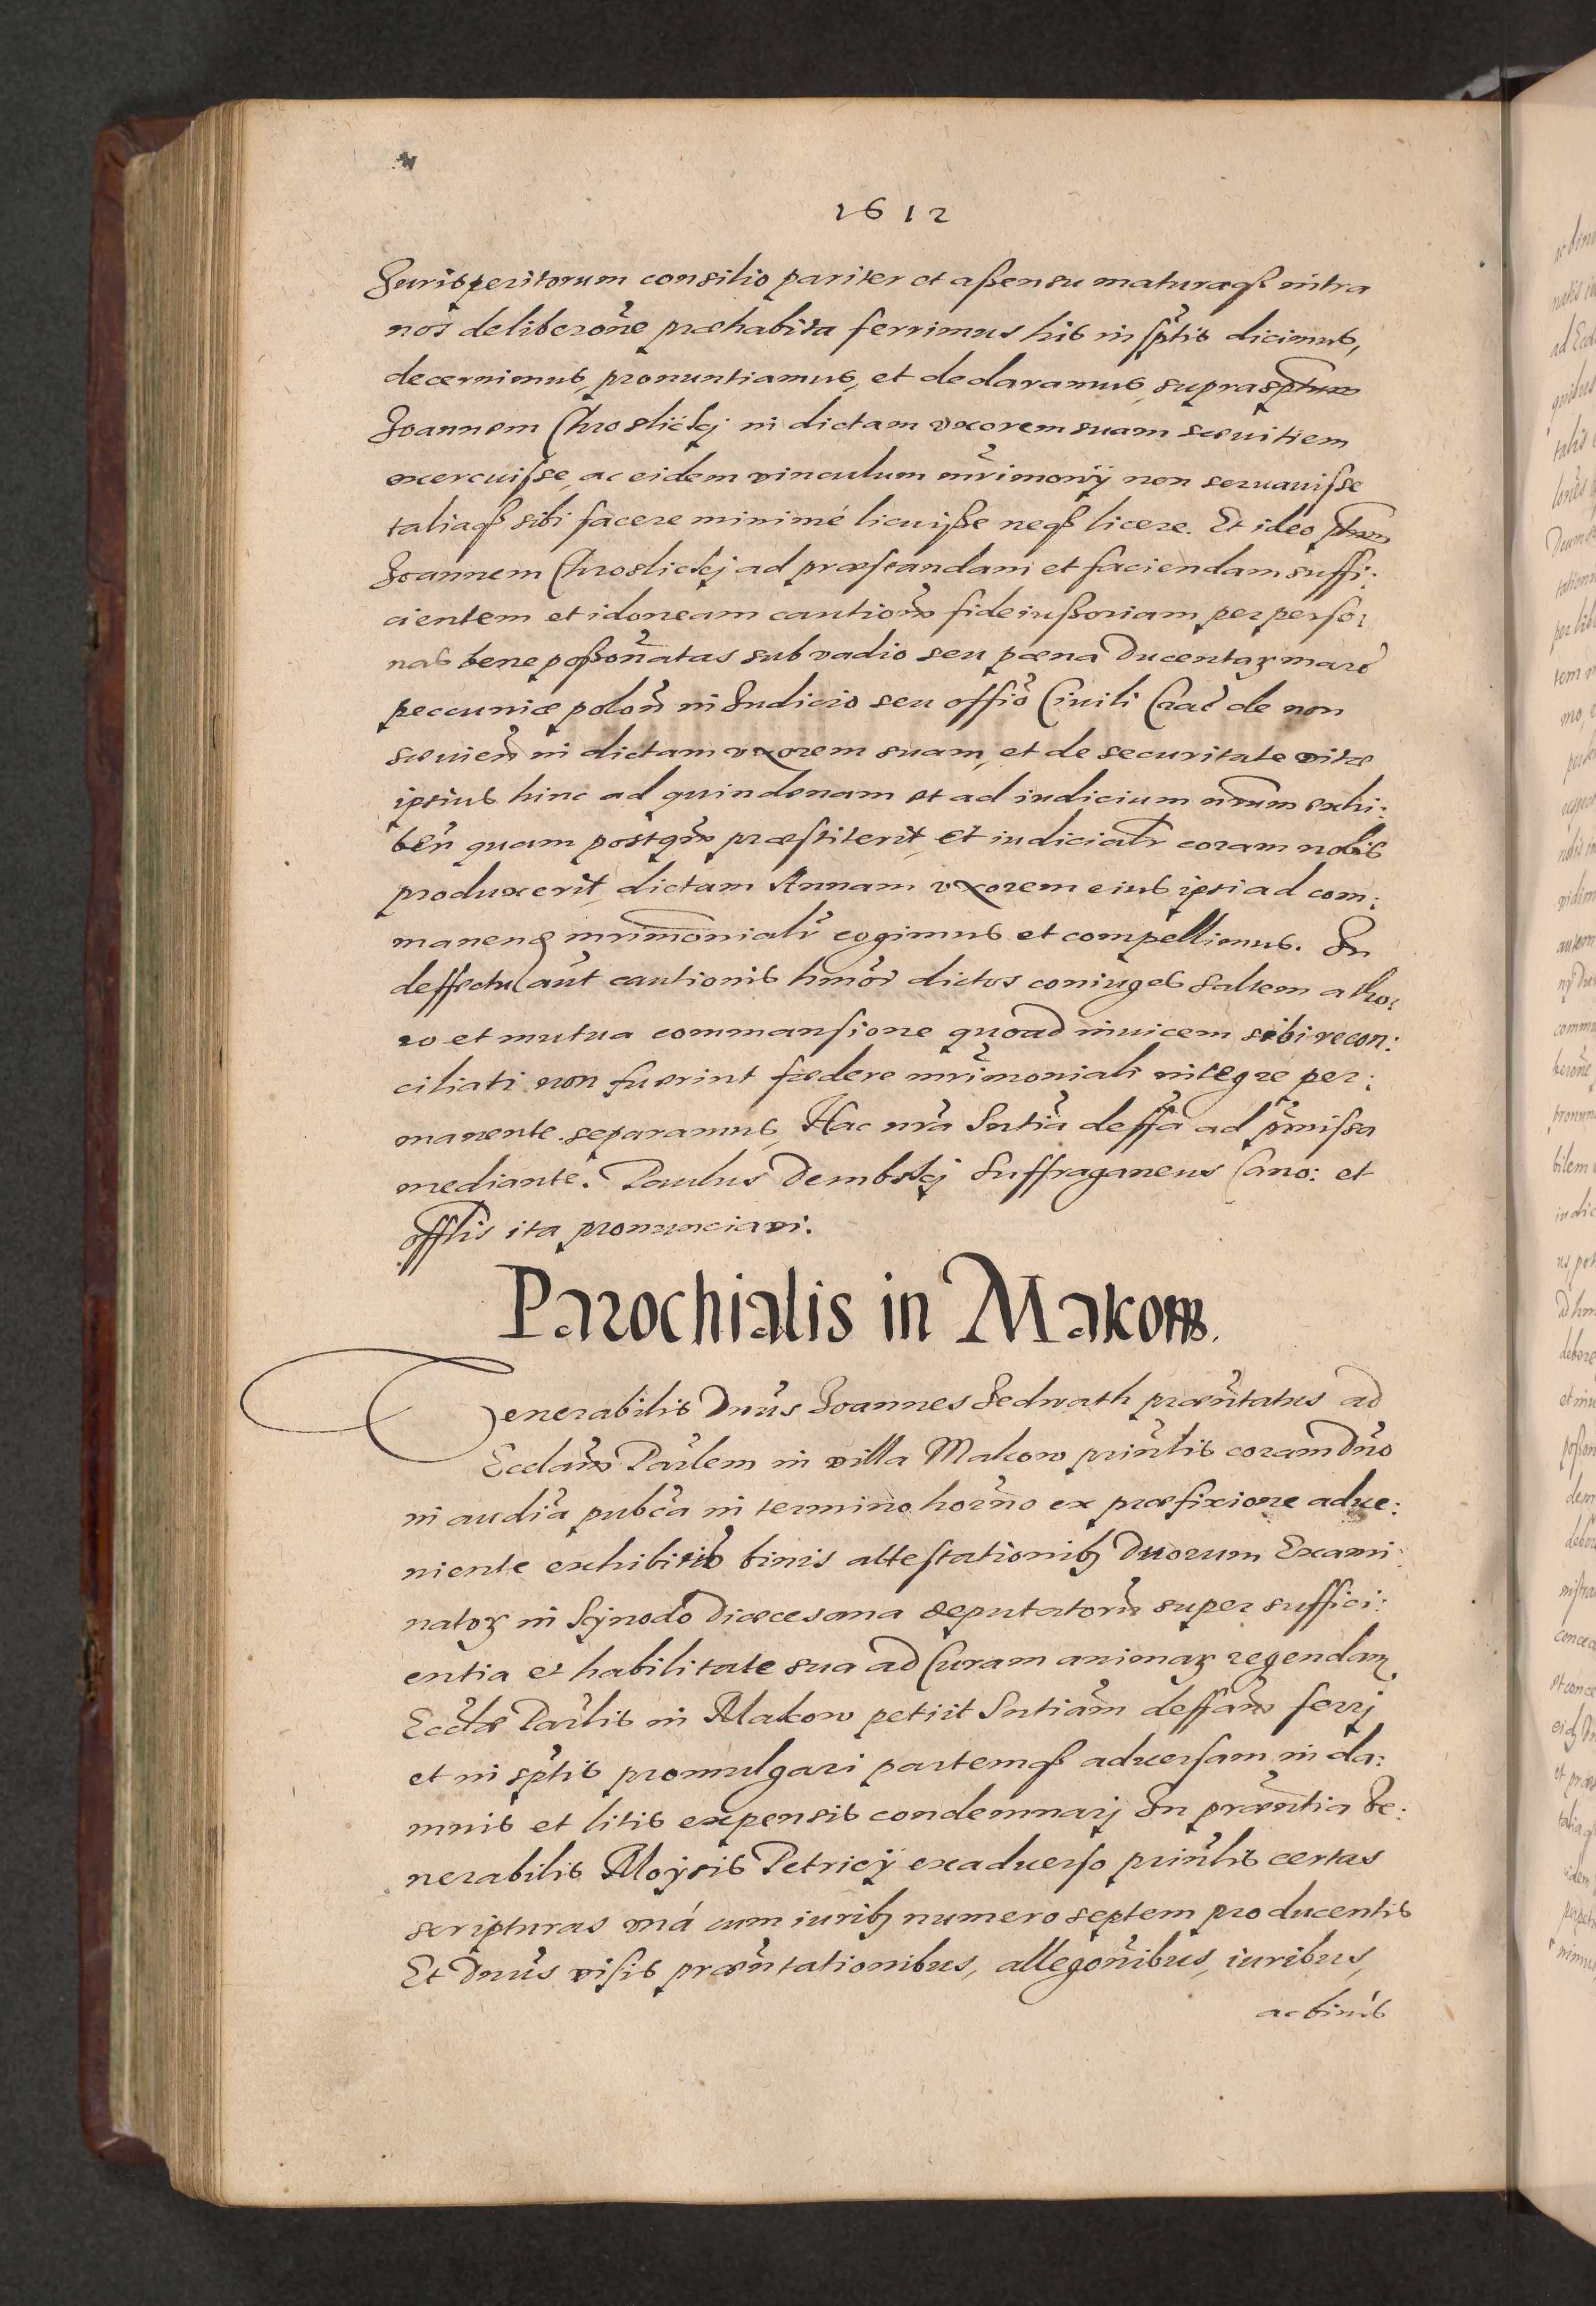 1612
Jurisperitorum consilio pariter et assensu maturaq3 intra
nos deliberõne præhabita ferrimus his in sp̃tis dicimus,
decernimus, pronuntiamus, et declaramus, suprasptum
Joannem Chroslicskj in dictam vxorem suam sæuitiem
exercuisse, ac eidem vinculum mr̃imonij non seruauisse
taliaq3 sibi facere minimé licuisse neq3 licere. Et ideo
Joannem Chroslickj ad præstandam et faciendam suffi:
cientem et idoneam cautiom̃ fideiussoriam, per perso:
nas bene possoñatas sub vadio seu pæna Ducentaꝝ marc̃
peccuniæ poloñ in Judicio seu offiõ Ciuili Crac̃ de non
sæuieñ in dictam vxorem suam, et de securitate vitæ
ipsius hinc ad quindenam et ad iudicium nr̃um exhi:
beñ quam postqm̃ præstiterit, et iudicialr̃ coram nobis
produxerit, dictam Annam vxorem eius ipsi ad com:
manend mr̃imonialr̃ cogimus et compellimus. In
deffectu aut̃ cautionis hmõi dictos coniuges saltem a tho:
ro et mutua commansione quoad inuicem sibi recon:
ciliati non fuerint fædere mr̃imoniali integre per:
manente separamus, Hac nr̃a Sntia deffa ad pr̃missa
mediante. Paulus Dembskj Suffraganeus Cano: et
Offlis ita pronunciavi.
Parochialis in Makow.
Venerabilis Dnus Joannes Sedwath præñtatus ad
Eccla͠m Par̃lem in villa Makow prin̄lis coram Dño
in audia pubca in termino hor̃no ex præfixione adue:
niente exhibitis binis attestationib3 Duorum Exami
natoꝝ in Synodo Diæcesana deputatorũ super suffici:
entia et habilitate sua ad Curam animaꝝ regendam
Ecclæ Par̃lis in Makow petiit Sntiam deffam ferrj
et in sp̃tis promulgari partemq3 aduersam in da:
mnis et litis expensis condemnarj In præntia Ve:
nerabilis Moysis Petricij ex aduerso prin̄lis certas
scripturas vná cum iurib3 numero septem producentis
Et Dnus visis præñtationibus, allegoñibus, iuribus,
ac binis